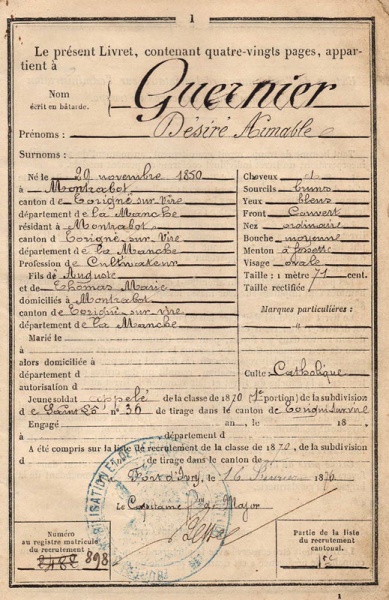 1
Le présent Livret, contenant quatre-vingts pages, appar-
tient à
Nom
écrit en bâtarde.
Guernier
Prénoms : Désiré Aimable
Surnoms :
Né le 29 novembre 1850
à Montrabot
canton de Torigni sur Vire
département de la Manche
résidant à Montrabot
canton de Torigni sur Vire
département de la Manche
Profession de Cultivateur
Fils de Auguste
et de Thomas Marie
domiciliés à Montrabot
canton de Torigni sur vire
département de la Manche
Marié le
à
alors domiciliée à
département d
autorisation d
Cheveux et
Sourcils bruns
Yeux bleus
Front Couvert
Nez ordinaire
Bouche moyenne
Menton à fossette
Visage ovale
Taille : 1 mètre 71 cent.
Taille rectifiée
Marques particulières :
Culte : Catholique
Jeune soldat appelé de la classe de 1870 (1e portion) de la subdivision
d e Saint Lô n° 36 de tirage dans le canton de Torigni sur vire
Engagé an , le 18 ,
à département d
A été compris sur la liste de recrutement de la classe de 1870, de la subdivision
d de tirage dans le canton de
Fort d'Ivry, le 16 Février 18
Le Capitaine Major
Numéro
au registre matricule
du recrutement :
898
Partie de la liste
du recrutement
cantonal.